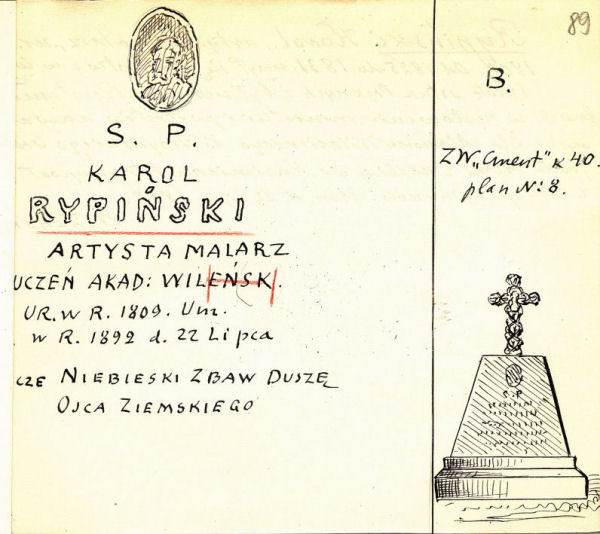 89
S. P.
KAROL
RYPIŃSKI
ARTYSTA MALARZ
UCZEŃ AKAD: WILEŃSK.
UR. W R. 1809. Um.
w R. 1892 d. 22 Lipca
CZE NIEBIESKI ZBAW DUSZĘ
OJCA ZIEMSKIEGO
B.
ZW. „Cment” K 40.
plan No: 8.
S. P